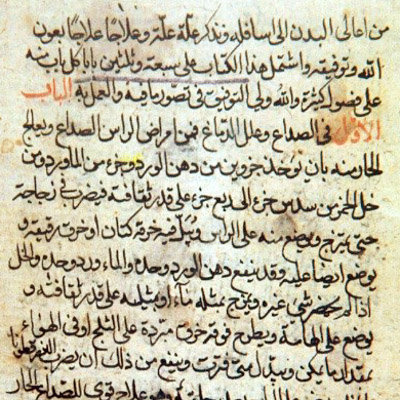 من اعالى البدن الى اسافله ونذكر علّة علّة وعلاجًا علاجًا بعون
الله وتوفيقه واشتمل هذا الكتاب على سبعة وثلثين بابا كل باب منه
على فصول كثيرة والله ولى التوفيق فى تصور ما فيه والعمل به الباب
الاول فى الصداع وعلل الدماغ فمن امراض الراس الصداع ويعالج
الحار منه بان يوخذ جزوين من دهن الورد وجزء من الماورد ومن
خل الخمر من سدس جزء الى ربع جزء على قدر ثقافته فيضرب فى زجاجة
حتى يمتزج ويوضع منه على الراس وتبل فيه خرقة كتان او خرقة رقيقة و
يوضع ايضا عليه وقد ينفع دهن الورد وحده والماء ورد وحده والخل
اذا لم يحضر شى غيره ويمزج بمثله ماء او مثيله على قدر ثقافته و
يوضع على الهامة ويطرح فوقه خرق مبرّدة على الثلج او فى الهواء
بمقدار ما يكن وتبدل متى فترت وينفع من ذلك ان يضرب
للصداع الحار